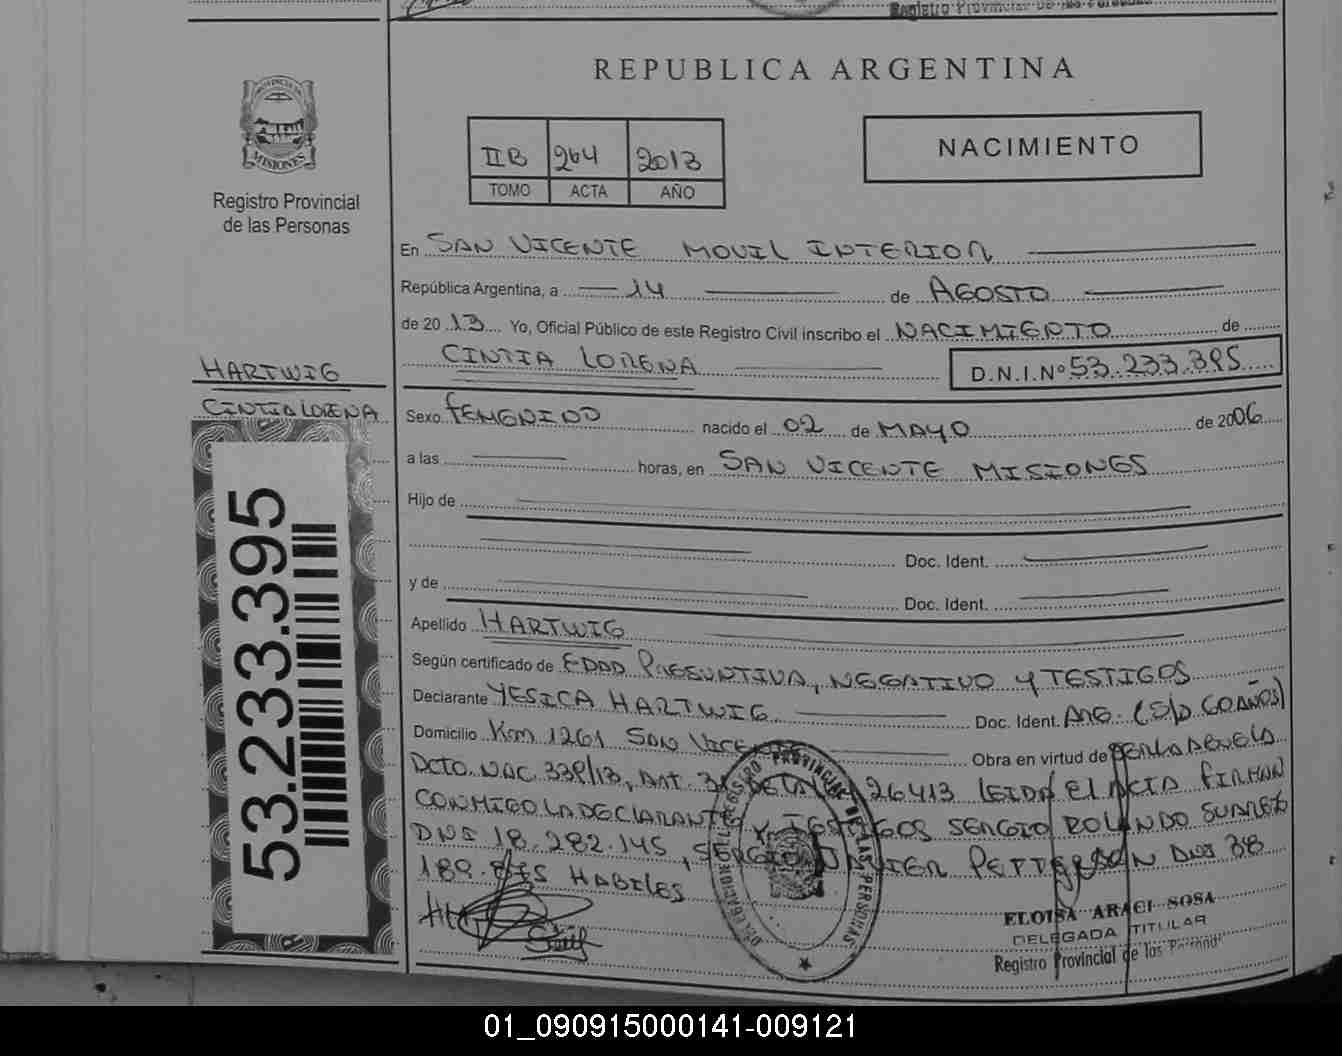 Registro Provincial de las Personas
REPUBLICA ARGENTINA
PROVINCIA DE
MISIONES
Registro Provincial
de las Personas
IIB 264 2013
TOMO ACTA AÑO
NACIMIENTO
En SAN VICENTE MOVIL INTERIOR
República Argentina, a 14 de AGOSTO
de 2013 Yo, Oficial Público de este Registro Civil inscribo el NACIMIENTO de
CINTIA LORENA D.N.I.Nº 53.233.395
HARTWIG
CINTIA LORENA
53.233.395
Sexo FEMENINO nacido el 02 de MAYO de 2006
a las horas, en SAN VICENTE MISIONES
Hijo de
Doc. Ident.
y de
Doc. Ident.
Apellido HARTWIG
Según certificado de EDAD PRESUNTIVA, NEGATIVO Y TESTIGOS
Declarante YESICA HARTWIG Doc. Ident. ARG. (S/D 60 AÑOS)
Domicilio Km 1261 SAN VICENTE Obra en virtud de ABUELA
DCTO. NAC. 339/13, ART. DE LA LEY 26413 LEIDA EL ACTA FIRMAN
CONMIGO LA DECLARANTE Y TESTIGOS SERGIO ROLANDO SUAREZ
DNI 18.282.145, SERGIO JAVIER PETTERSON DNI 38
189.875 HABILES
DELEGACION REGISTRO PROVINCIAL DE LAS PERSONAS
ELOISA ARACI SOSA
DELEGADA TITULAR
Registro Provincial de las Personas
01_090915000141-009121